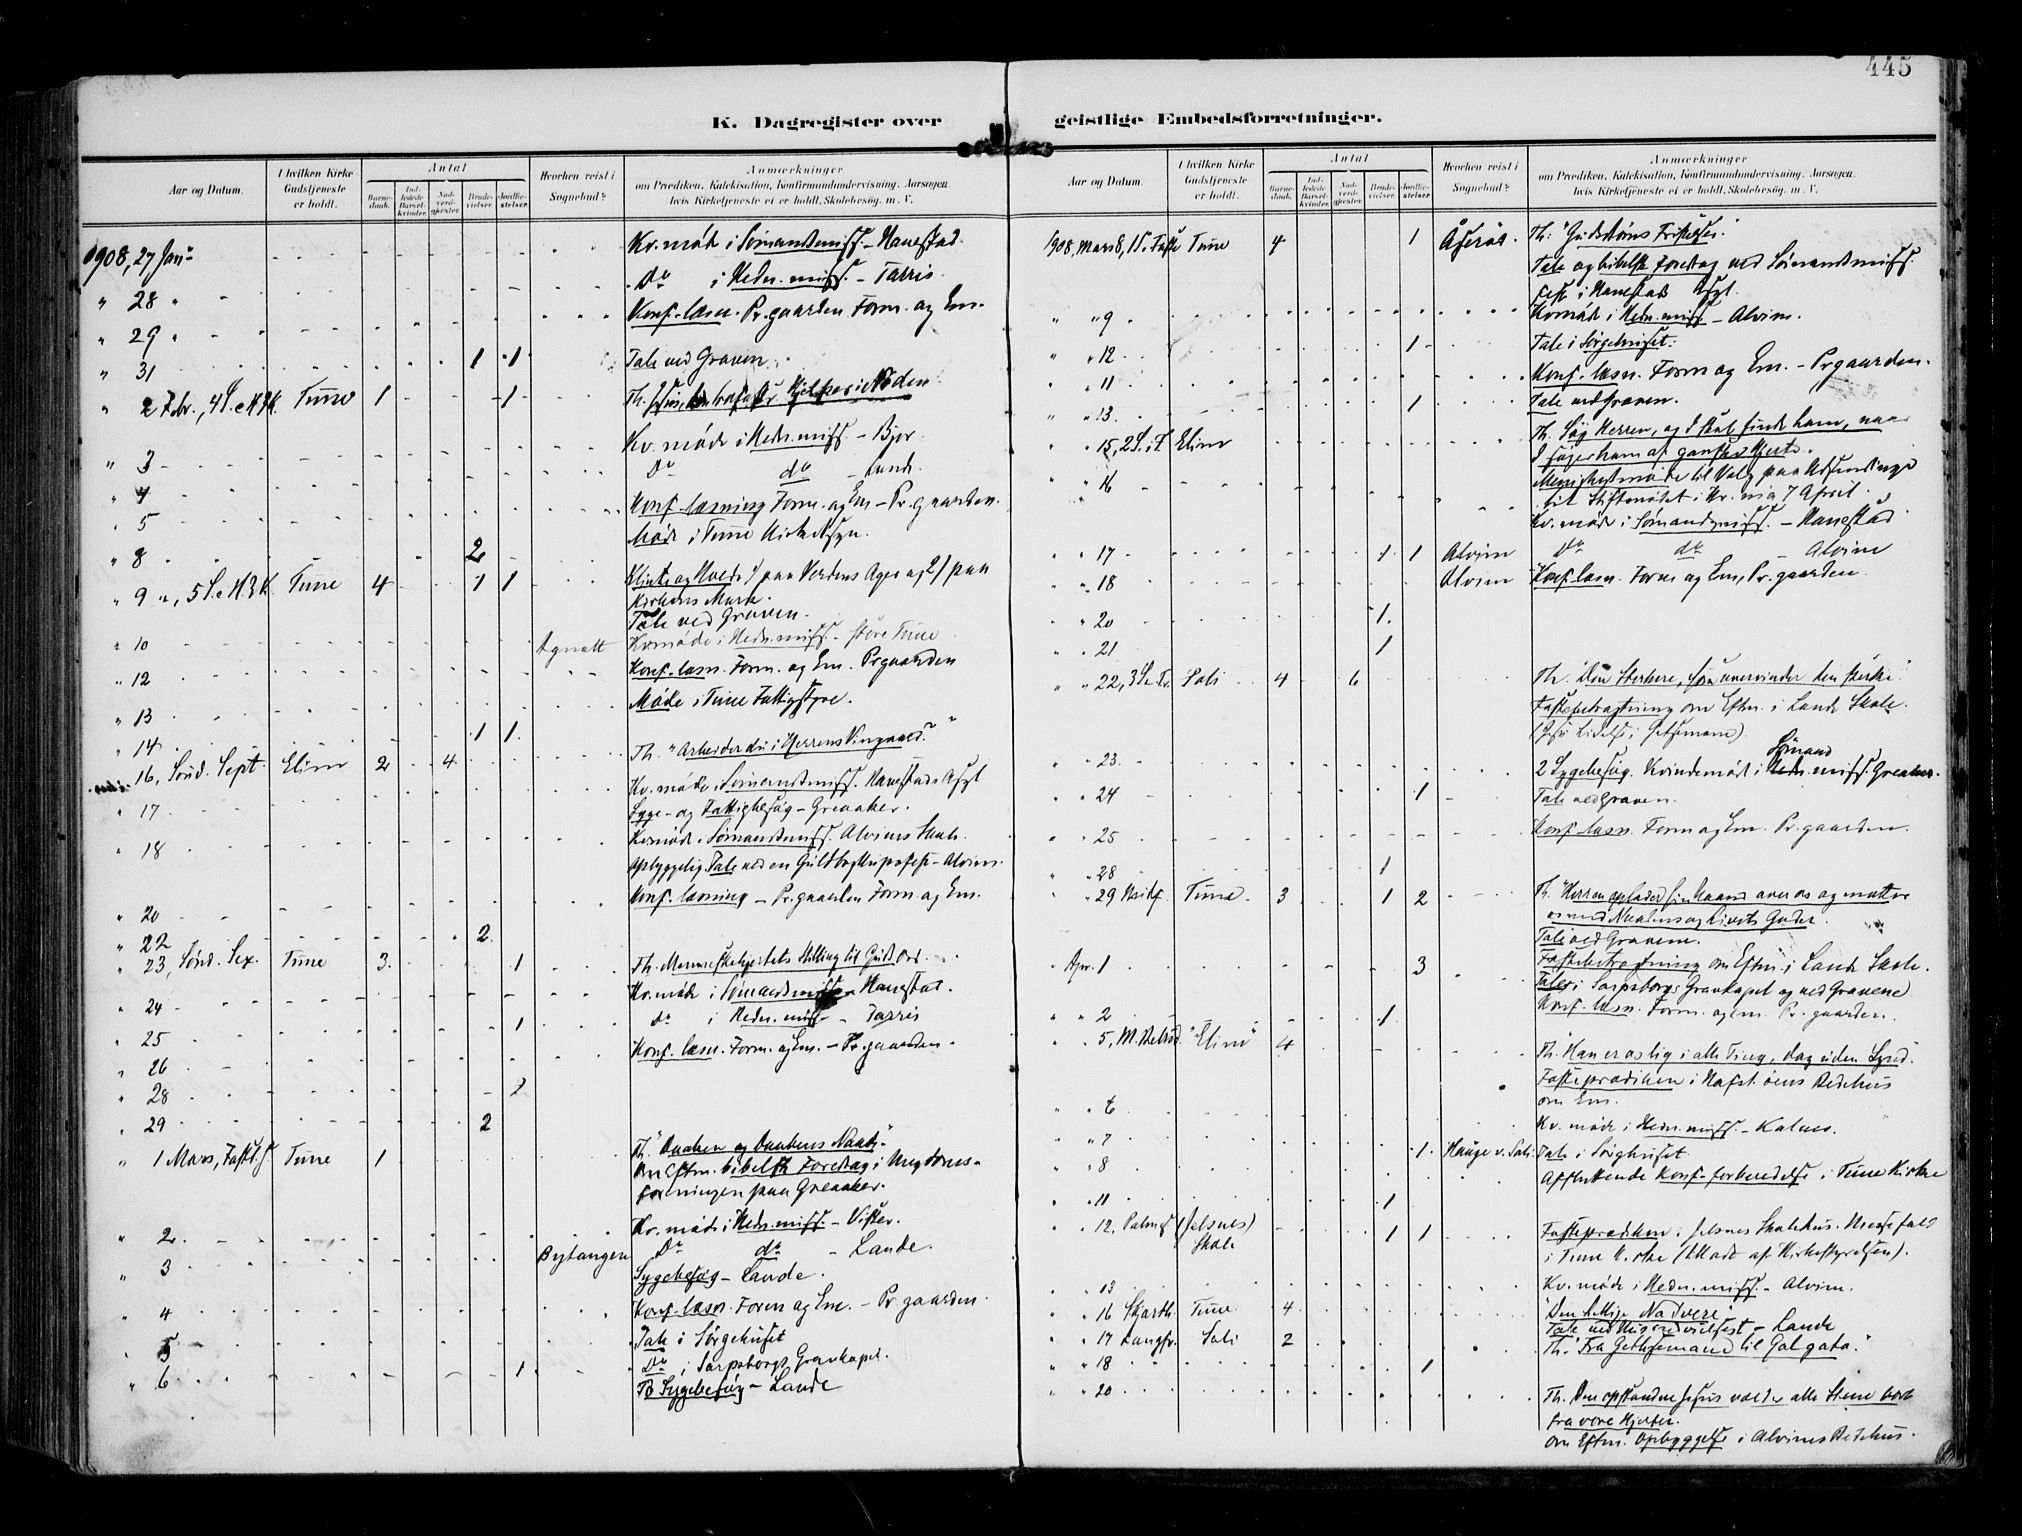 445
K. Dagregister over geistlige Embedsforretninger.
Aar og Datum.
I hvilken Kirke Gudstjeneste er holdt.
Antal
Barne-daab.
Ind-ledede Barsel-kvinder.
Nad-verd-gjester.
Brude-vielser.
Jordfæ-stelser.
Hvorhen reist i Sognebud?
Anmærkninger
om Prædiken, Katekisation, Konfirmandundervisning, Aarsagen, hvis Kirketjeneste ei er holdt, Skolebesøg, m. V.
1908, 27 Jan. Kv. møde i Sømandsmiss. - Hanestad.
" 28 " Do i Hedn. miss. - Tarris.
" 29 " Konf. læsn. Pr.gaarden Form. og Em.
" 31 1 1 Tale ved Graven.
" 2 Febr., 4 S. e. H3K. Tune 1 1 Th. Hjelper i Nøden
" 3 Kv. møde i Hedn. miss. - Bjor.
" 4 Do do - Lande.
" 5 Konf. læsning Form. og Em - Pr.gaarden.
" 8 2 Møde i Tune Kirketilsyn.
" 9 ", 5 S. e. H3K. Tune 4 1 1 Klinte og Hvede 1) paa Verdens Ager og 2) paa
Kirkens Mark.
Tale ved Graven.
" 10 Agnatt Kv.møde i Hedn. miss. - store Tune
" 12 Konf. læsn. Form. og Em. Pr.gaarden
" 13 Møde i Tune Fattigstyre.
" 14 1 1
16, Sønd. Sept. Elim 2 4 Th. "Arbeider du i Herrens Vingaard?"
" 17 Kv. møde i Sømandsmiss. Hanestads Asyl
Syge- og Fattigbesøg - Greaaker.
" 18 Kv.møde i Sømandsmiss. Alvims Skole.
Opbyggelig Tale ved en Guldbryllupsfest - Alvim.
" 20 Konf. læsning - Pr.gaarden Form og Em.
" 22 2
" 23, Sønd. Sex. Tune 3 1 Th. Menneskehjertets Stilling til Guds Ord.
" 24 Kv. møde i Sømandsmiss - Hanestad.
" 25 1 do i Hedn. miss. - Tarris
" 26 Konf. læsn. Form. og Em. - Pr.gaarden.
" 28
" 29 2
" 1 Mars, Fastel. S Tune 1 Th. "Daaben og Daabens Naade"
Om Eftm. bibelsk Foredrag i Ungdoms-
foreningen paa Greaaker.
" 2 Kv. møde i Hedn. miss. - Vister.
" 3 Bytangen Do do - Lande.
Sygebesøg - Lande.
" 4 Konf. læsn. Form og Em. - Pr.gaarden.
" 5 Tale i Sørgehuset
" 6 1 Do i Sarpsborgs Gravkapel.
Sygebesøg - Lande
Aar og Datum.
I hvilken Kirke Gudstjeneste er holdt.
Antal
Barne-daab.
Ind-ledede Barsel-kvinder.
Nad-verd-gjester.
Brude-vielser.
Jordfæ-stelser.
Hvorhen reist i Sognebud?
Anmærkninger
om Prædiken, Katekisation, Konfirmandundervisning, Aarsagen, hvis Kirketjeneste ei er holdt, Skolebesøg, m. V.
1908, Mars 8, 1 S. i Faste Tune 4 1 Th.
Tale og bibelsk Foredrag ved Sømandsmiss.
fest i Hanestads Asyl.
" " 9 Kv.møde i Hedn. miss. - Alvim.
" 12 1 Tale i Sørgehuset.
" 11 Konf. læsn. Form og Em. - Pr.gaarden.
" " 13. 1 Tale ved Graven.
" 15, 2 S. i F. Elim Th. Søg Herren, og I skal finde ham, naar
I søger ham af ganske Hjerte.
" 16 Menighedsmøde til Valg paa Udsendinge
til Stiftsmødet i Kr.nia 7 April.
Kv. møde i Sømandsmiss. - Hanestad
" 17 1 1 Alvim Do do - Alvim
" 18 Alvim Konf. læsn. Form og Em, Pr.gaarden.
" 20 1
" 21 1
" 22, 3 S. i F. Soli 4 6 Th. Den Sterkere, som overvinder den sterke
Fastebetragtning om Eftm. i Lande Skole.
(Jesu Lidelse i Getsemane).
Sømand
" 23. 2 Sygebesøg. Kvindemøde i Hedn. miss. Greaaker.
" 24 1 Tale ved Graven.
" 25 Konf. læsn. Form og Em. Pr.gaarden.
" 28 1
" 29 Midf. Tune 3 1 2 Th. Herren oplader sin Haand over os og mætter
os med Naadens og Livets Goder.
Tale ved Gravene.
" Apr. 1 3 Fastebetragtning om Eftm. i Lande Skole.
Taler i Sarpsborgs Gravkapel og ved Gravene
" " 2 1 Konf. læsn. Form. og Em. Pr. gaarden.
" 5, M. Bebud. "Elim" 4 Th. "Han er os lig i alle Ting, dog uden Synd."
Fasteprædiken i Hafslundsøens Bedehus
om Em.
" " 6
" " 7 Kv. møde i Hedn. miss. - Kalnes.
" " 8 1 Hauge v. Soli Tale i Sørgehuset.
" " 11 1 Afsluttende Konf.-forberedelse i Tune Kirke
" " 12, Palmes (Jelsnes) Skole 1 1 Fasteprædiken i Jelsnes Skolehus. Messefald
i Tune Kirke (tilladt af Kirkestyrelsen).
" 13 Kv. møde i Hedn. miss. - Alvim.
" 16 Skjærth. Tune 4 "Den hellige Nadvere"
Tale ved Minde - Lande
" 17 Langfr. Soli 2 Th. "Fra Gethsemane til Golgata."
" " 18 1
" " 20 Th. Den opstandne Jesus vælter alle Stene bort
fra vore Hjerter.
Om Eftm. Opbyggelse i Alvims Bedehus.